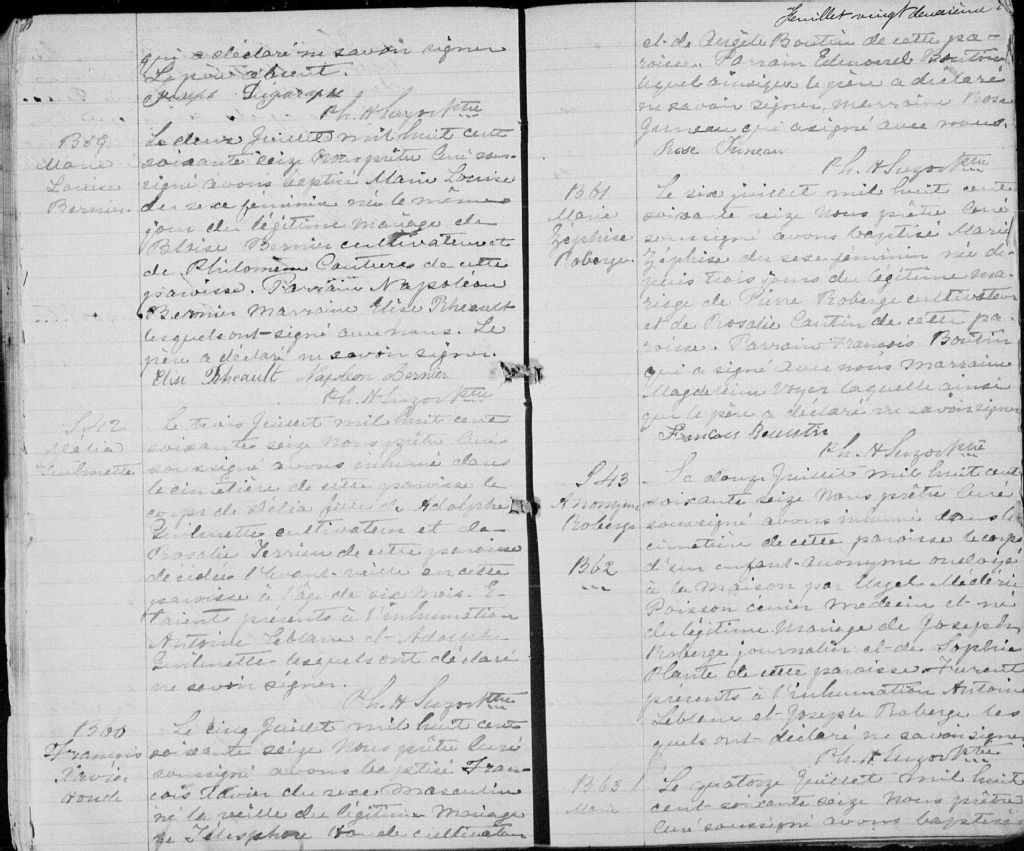 qui a déclaré ne savoir signer
Le père absent.
Joseph
Ph. H Suzor Ptre
B59
Marie
Louise
Bernier
Le deux Juillet mil huit cent
soixante seize Nous prêtre Curé sous-
signé avons baptisé Marie Louise
du sexe feminin née le même
jour du légitime mariage de
Blaise Bernier cultivateur et
de Philomène Coutures de cette
paroisse. Parrain Napoléon
Bernier Marraine Elise Rheault
lesquels ont signé avec nous. Le
père a déclaré ne savoir signer.
Elise Rheault Napoléon Bernier
Ph. H Suzor Ptre
S42
Délia
Quilmette
Le trois Juillet mil huit cent
soixante seize Nous prêtre Curé
soussigné avons inhumé dans
le cimetière de cette paroisse le
corps de Délia fille de Adolphe
Quilmette cultivateur et de
Rosalie Terrien de cette paroisse
décédée l'avant-veille en cette
paroisse à l'âge de six mois. E-
taient présents à l'inhumation
Antoine Leblanc et Adolphe
Quilmette lesquels ont déclaré
ne savoir signer.
Ph. H Suzor Ptre
B60
François
Xavier
Houle
Le cinq Juillet mil huit cent
soixante seize Nous prêtre Curé
soussigné avons baptisé Fran-
cois Xavier du sexe masculin
né la veille du légitime mariage
de Télesphore Houle cultivateur
Feuillet vingt deuxième
et de Angèle Boutin de cette pa-
roisse. Parrain Edmond Boutin
lequel ainsi que le père a déclaré
ne savoir signer, marraine Rose
Juneau qui a signé avec nous.
Rose Juneau
Ph. H Suzor Ptre
B61
Marie
Zéphise
Roberge
Le six juillet mil huit cent
soixante seize Nous prêtre Curé
soussigné avons baptisé Marie
Zéphise du sexe féminin née de-
puis trois jours du légitime ma-
riage de Pierre Roberge cultivateur
et de Rosalie Cantin de cette pa-
roisse. Parrain François Boutin
qui a signé avec nous marraine
Magdeleine Voyer laquelle ainsi
que le père a déclaré ne savoir signer
Francois
Ph. H Suzor Ptre
S43
Anonyme
Roberge
B62
Le douze Juillet mil huit cent
soixante seize Nous prêtre Curé
soussigné avons inhumé dans le
cimetière de cette paroisse le corps
d'un enfant Anonyme ondoyé
à la maison par Urgel Médéric
Poisson ecuier medecin et né
du légitime Mariage de Joseph
Roberge journalier et de Sophie
Plante de cette paroisse. Furent
présents à l'inhumation Antoine
Leblanc et Joseph Roberge les
quels ont déclaré ne savoir signer
Ph. H Suzor Ptre
B63
Marie
Le quatorze Juillet mil huit
cent soixante seize Nous prêtre
Curé soussigné avons baptisé